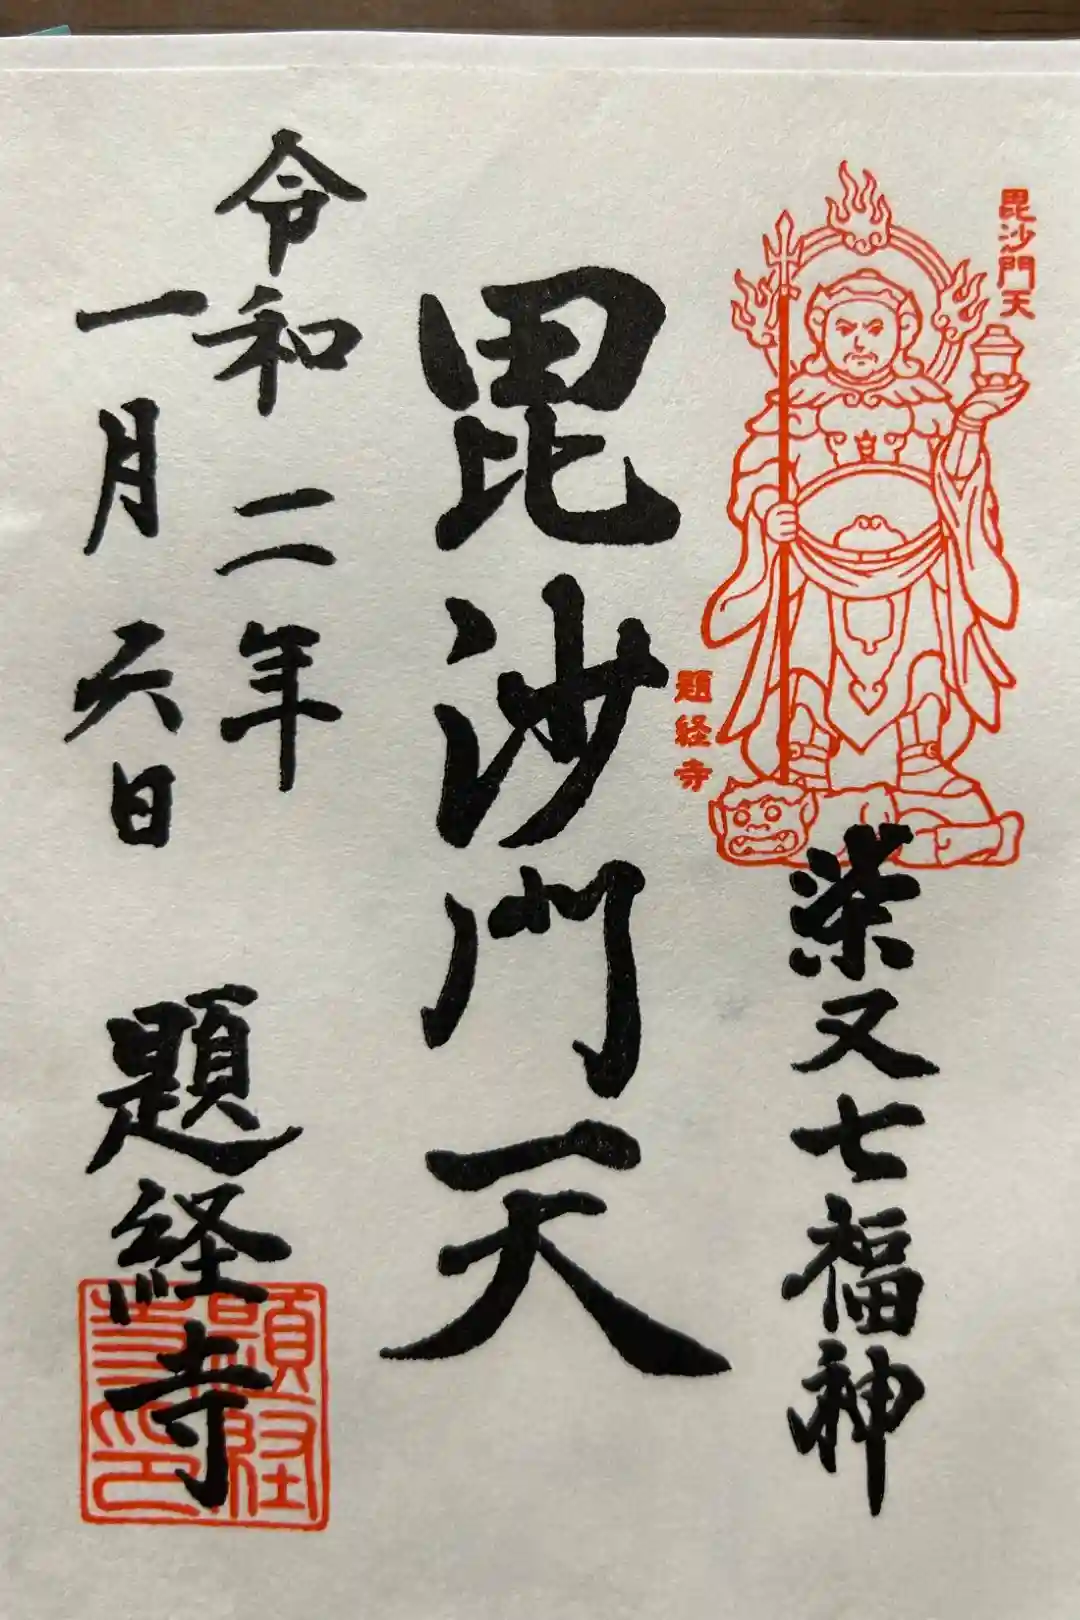 毘沙門天
柴又七福神
題経寺
毘沙門天
令和二年
一月六日
題経寺